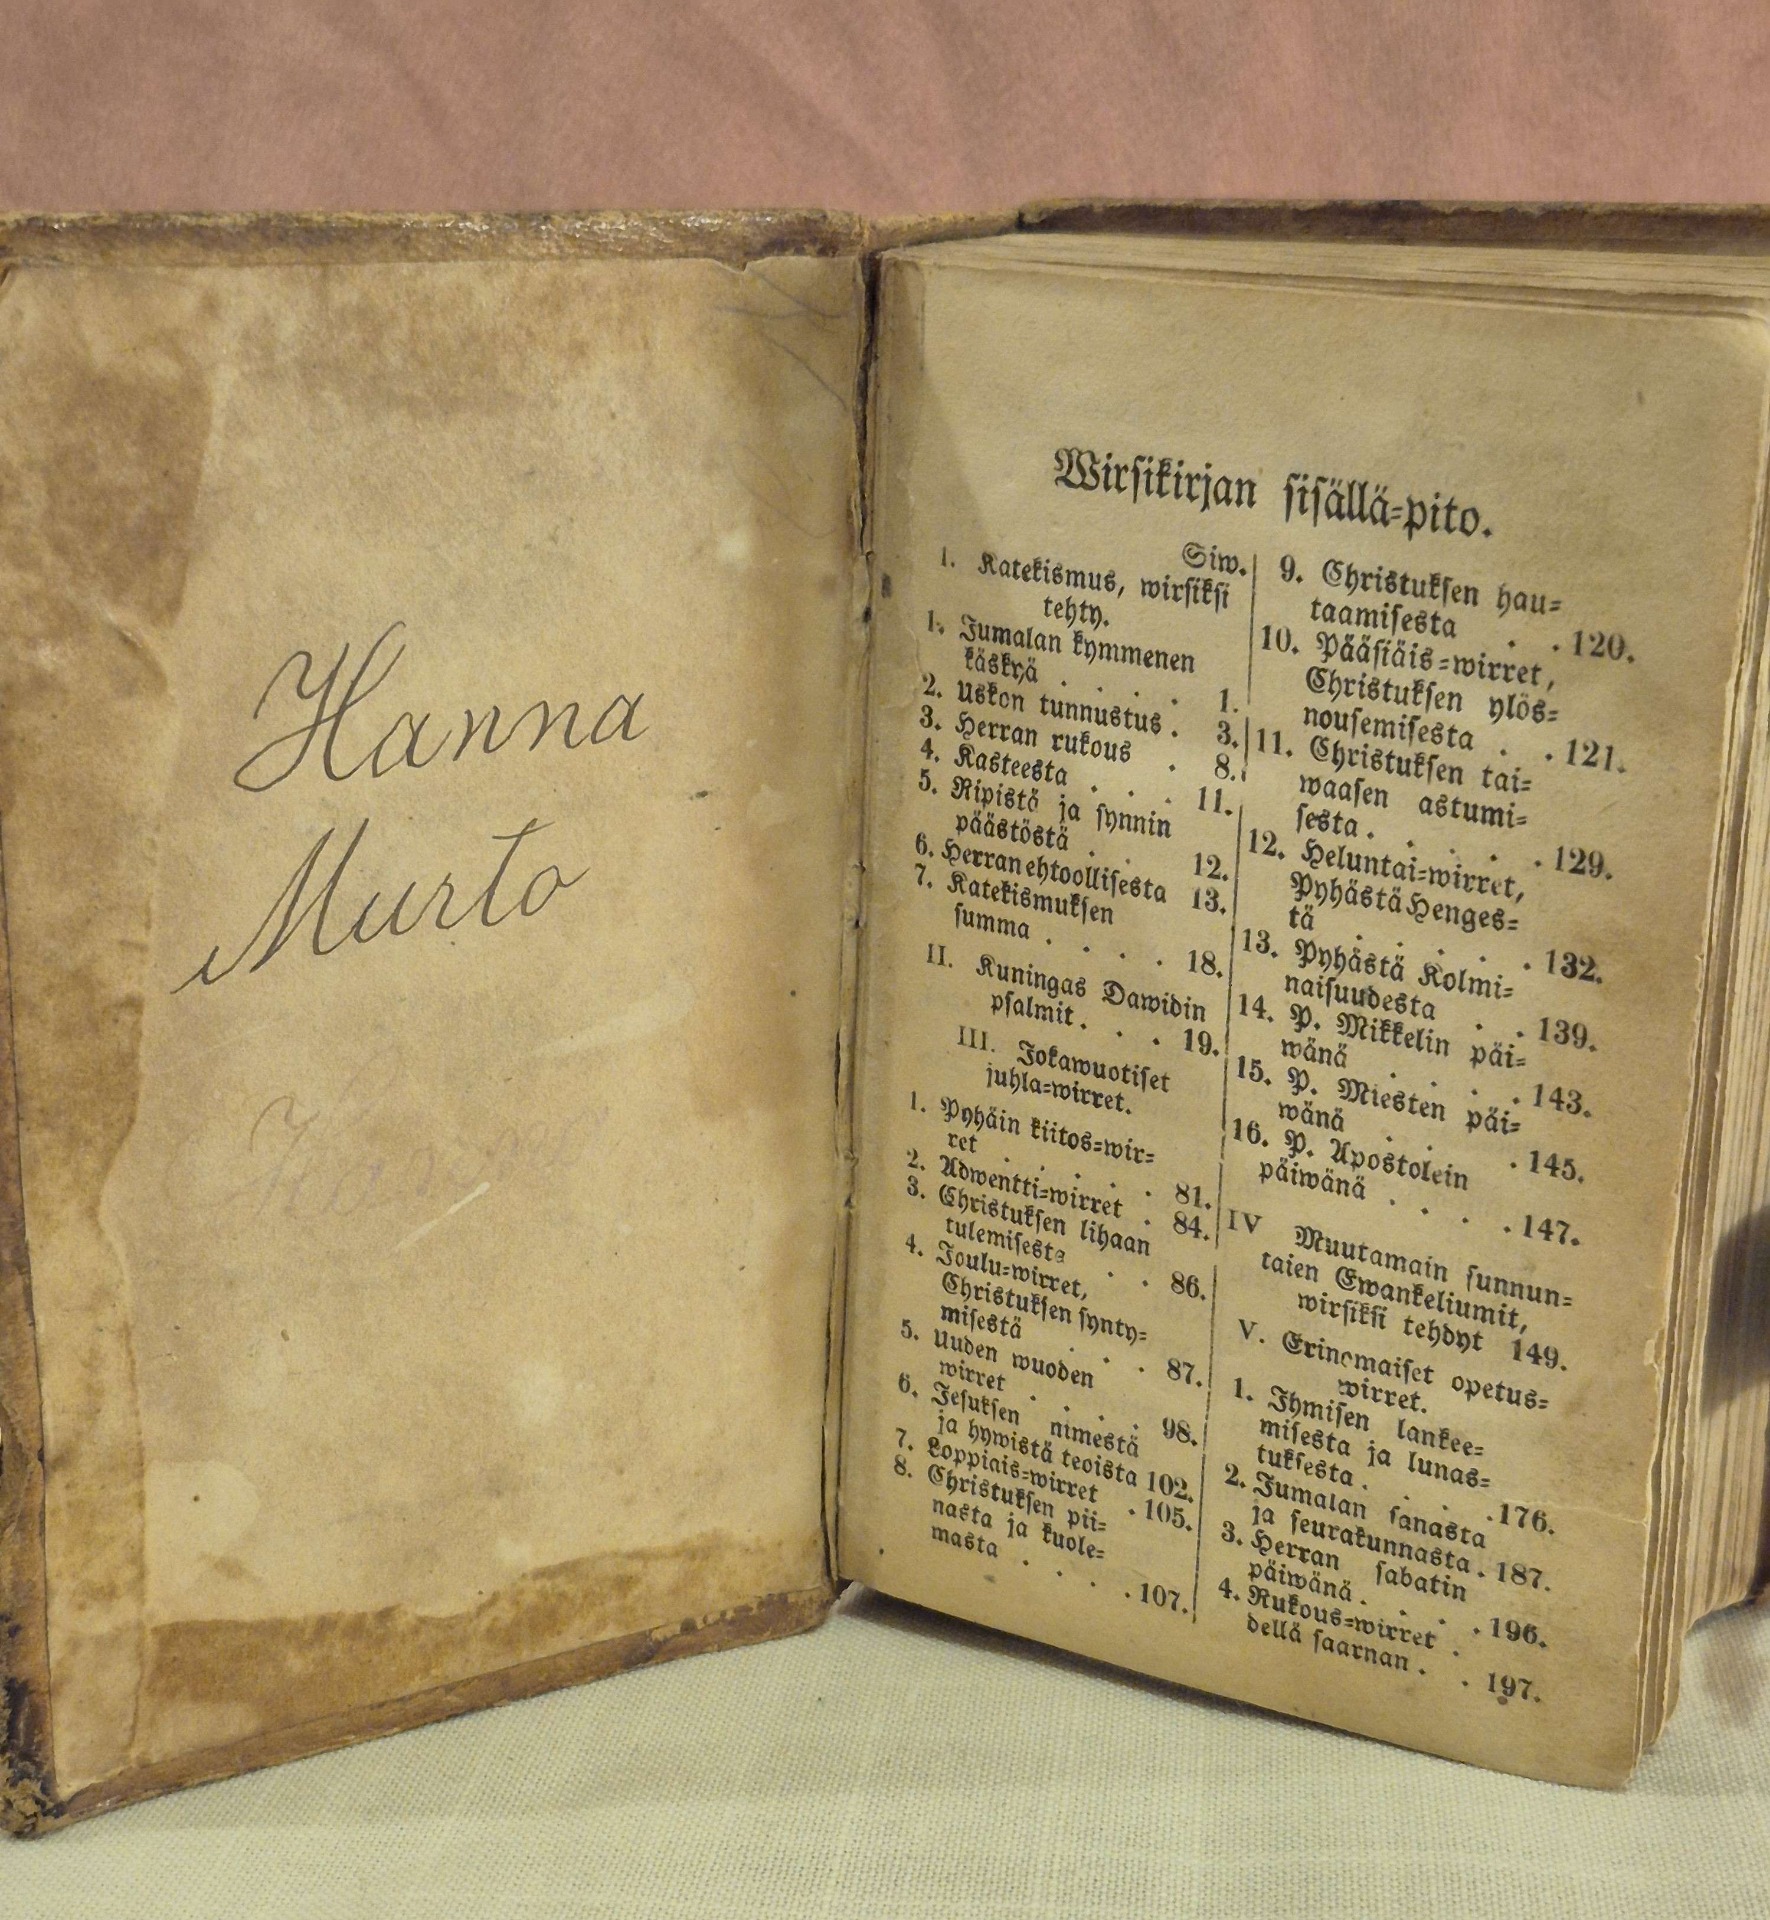 Hanna
Murto
Wirsikirjan sisällä-pito.
Siw.
I. Katekismus, wirsiksi
tehty.
1. Jumalan kymmenen
käskyä . . . . 1.
2. Uskon tunnustus . 3.
3. Herran rukous . 8.
4. Kasteesta . . . 11.
5. Ripistä ja synnin
päästöstä . . 12.
6. Herran ehtoollisesta 13.
7. Katekismuksen
summa . . . . 18.
II. Kuningas Dawidin
psalmit . . . 19.
III. Jokawuotiset
juhla-wirret.
1. Pyhäin kiitos-wir-
ret . . . . . 81.
2. Adwentti-wirret . 84.
3. Christuksen lihaan
tulemisesta . . 86.
4. Joulu-wirret,
Christuksen synty-
misestä . . . 87.
5. Uuden wuoden
wirret . . . . 98.
6. Jesuksen nimestä
ja hywistä teoista 102.
7. Loppiais-wirret . 105.
8. Christuksen pii-
nasta ja kuole-
masta . . . . 107.
9. Christuksen hau-
taamisesta . . 120.
10. Pääsiäis-wirret,
Christuksen ylös-
nousemisesta . . 121.
11. Christuksen tai-
waasen astumi-
sesta . . . . . 129.
12. Heluntai-wirret,
Pyhästä Henges-
tä . . . . . 132.
13. Pyhästä Kolmi-
naisuudesta . . 139.
14. P. Mikkelin päi-
wänä . . . . 143.
15. P. Miesten päi-
wänä . . . 145.
16. P. Apostolein
päiwänä . . . . 147.
IV Muutamain sunnun-
taien Ewankeliumit,
wirsiksi tehdyt 149.
V. Erinomaiset opetus-
wirret.
1. Ihmisen lankee-
misesta ja lunas-
tuksesta . . . . 176.
2. Jumalan sanasta
ja seurakunnasta . 187.
3. Herran sabatin
päiwänä . . . . 196.
4. Rukous-wirret .
dellä saarnan . . 197.